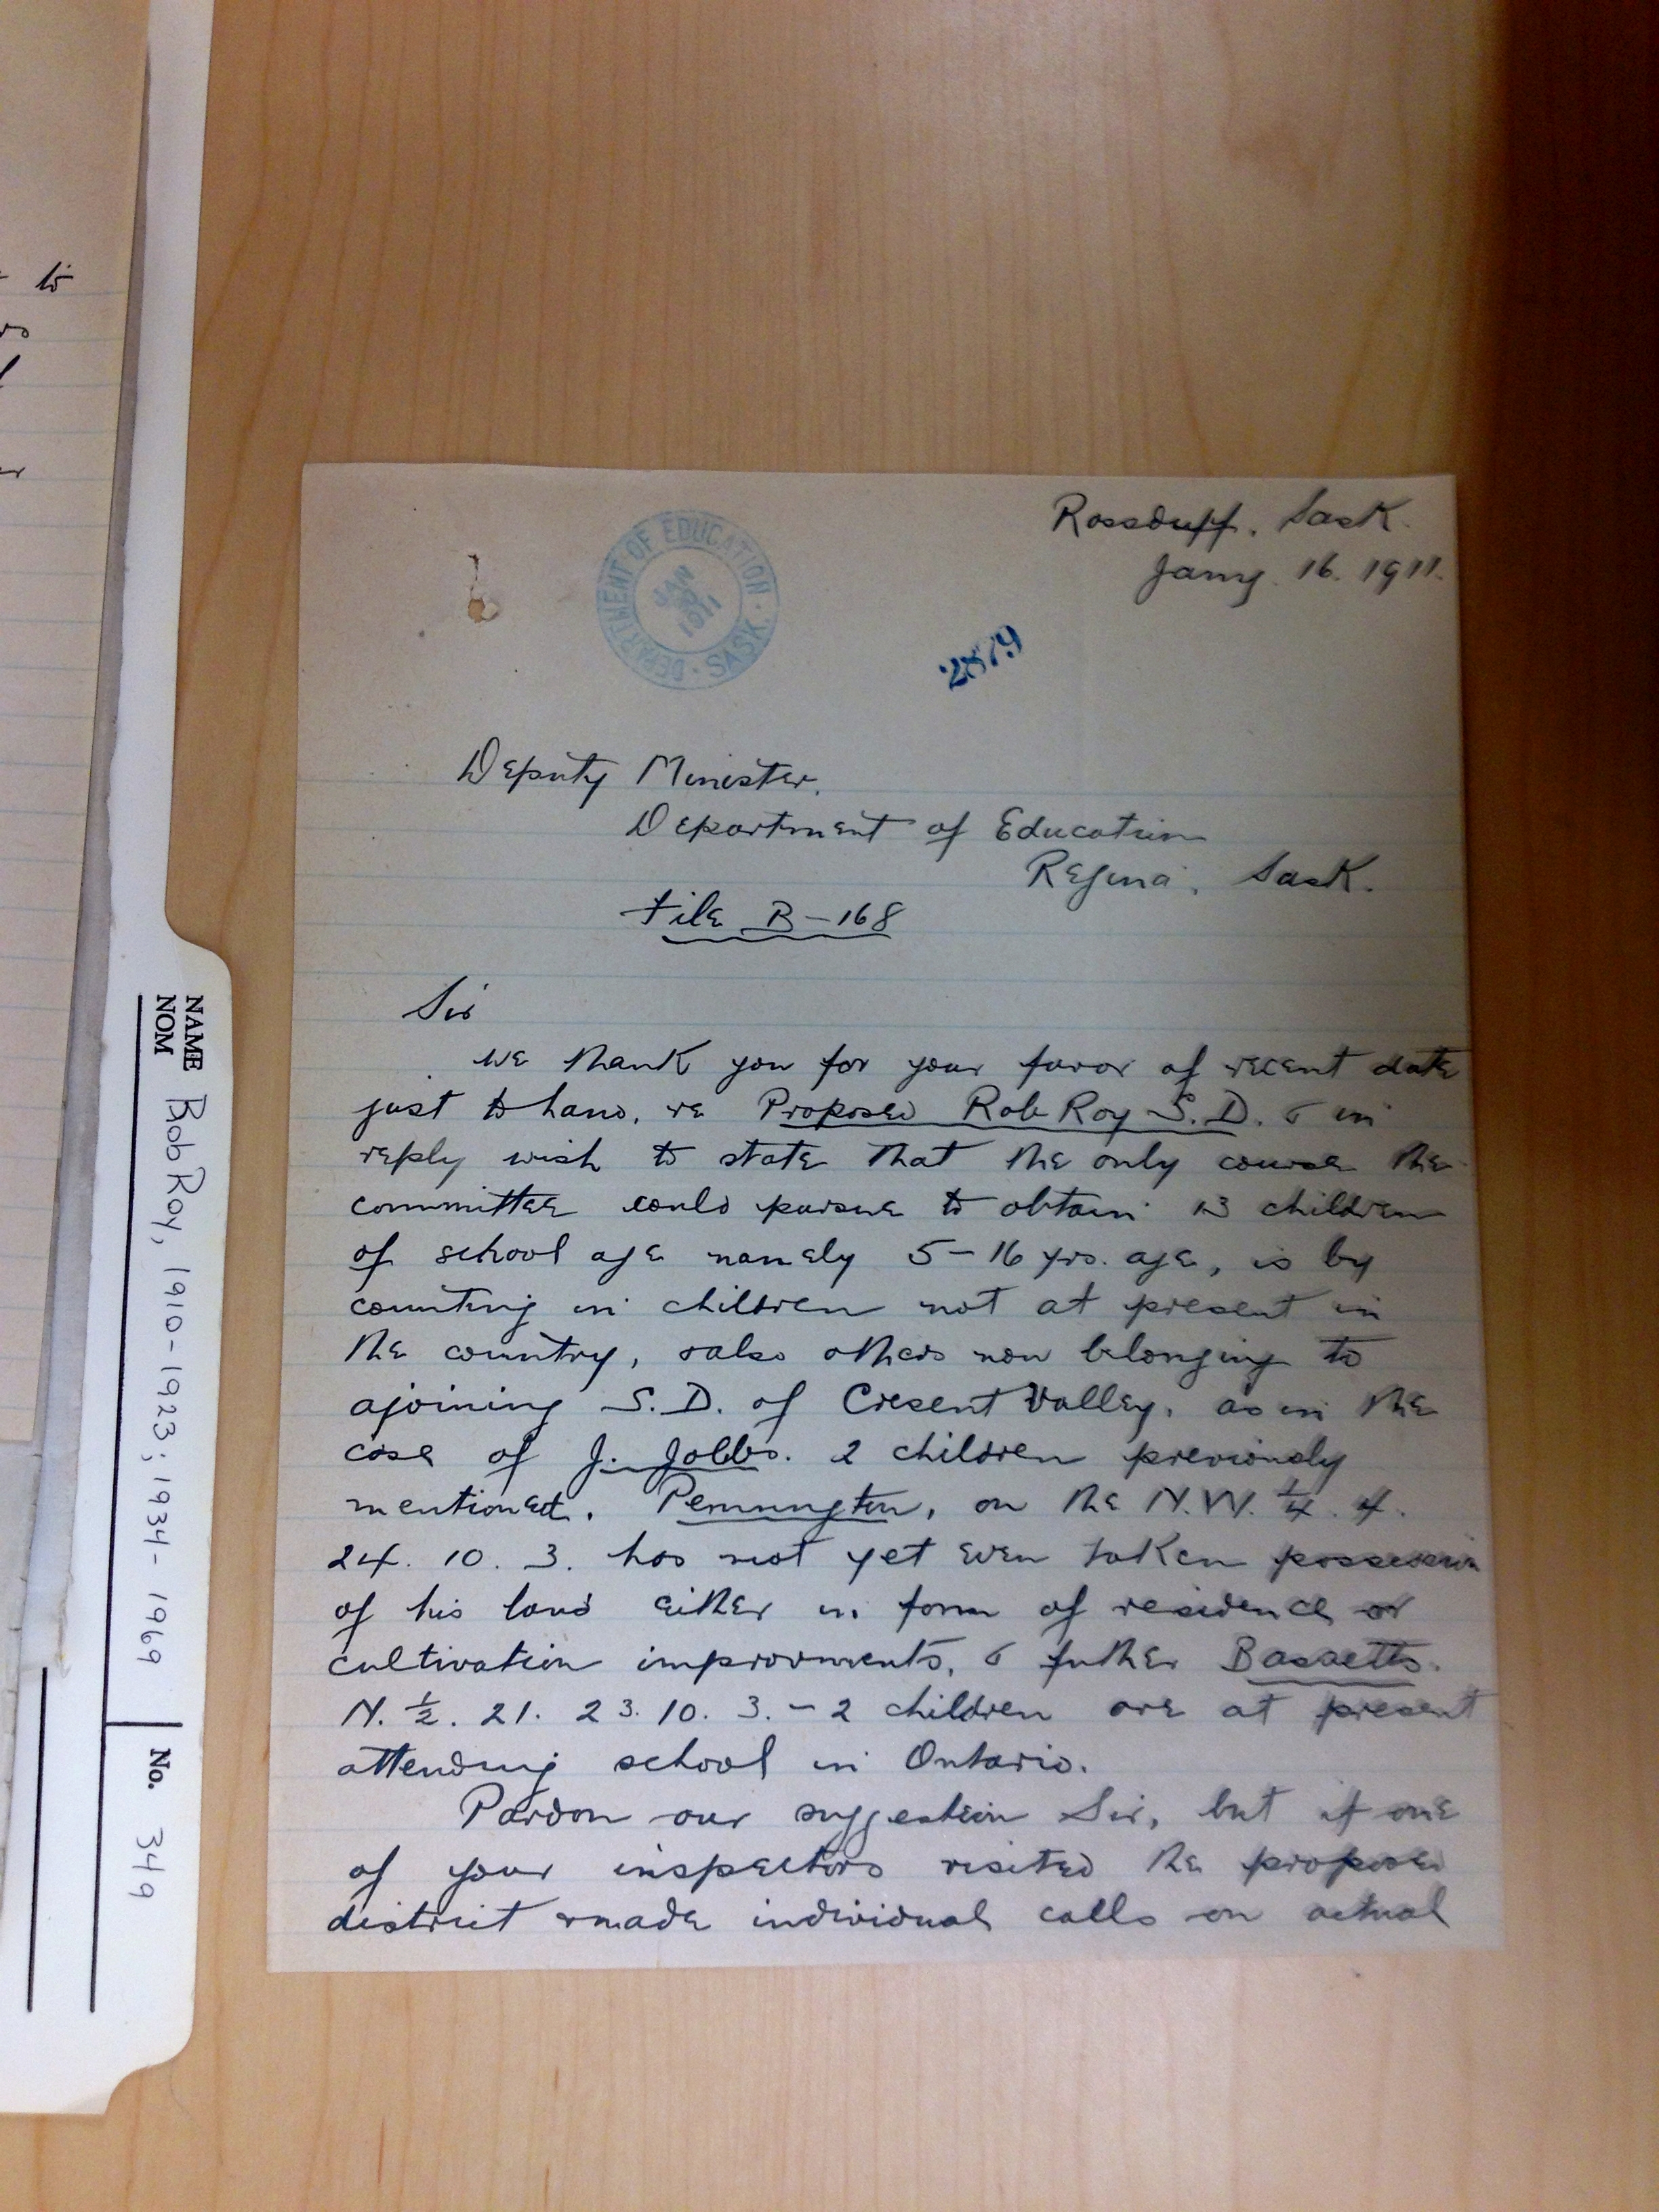 to
Rossduff. Sask.
Jany. 16. 1911.
DEPARTMENT OF EDUCATION · SASK. ·
JAN
1911
2879
Deputy Minister.
Department of Education
Regina. Sask.
File B-168
Sir
We thank you for your favor of recent date
just to hand, re Proposed Rob Roy S.D. & in
reply wish to state that the only course the
committee could pursue to obtain 13 children
of school age namely 5-16 yrs. age, is by
counting in children not at present in
the country, & also others now belonging to
ajoining S.D. of Cresent Valley, as in the
case of J. Jobbs. 2 children previously
mentioned. Pennington, on the N.W. 1/4. 4.
24. 10. 3. has not yet even taken possession
of his land either in form of residence or
cultivation improvments, & futher Bassetts.
N. 1/2. 21. 23. 10. 3. - 2 children are at present
attending school in Ontario.
Pardon our suggestion Sir, but if one
of your inspectors visited the proposed
district & made individual calls on actual
NAME
NOM
Bob Roy, 1910-1923; 1934-1969
No. 349